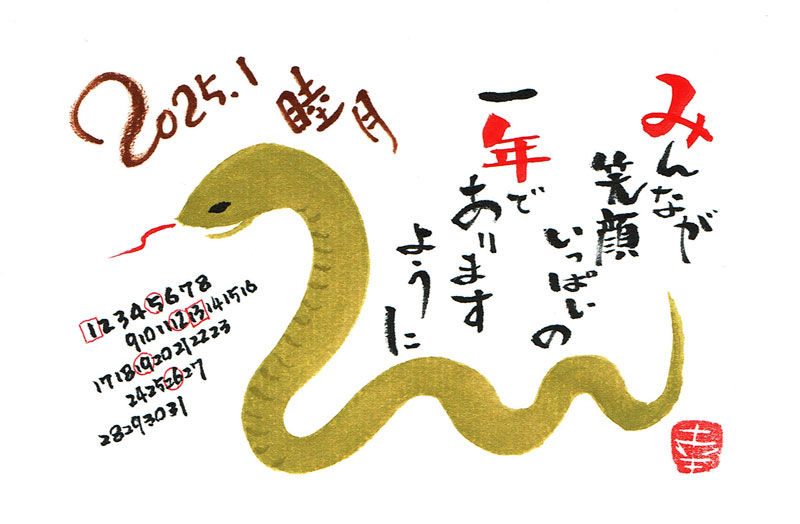 2025.1 睦月
みんなが
笑顔
いっぱいの
一年で
あります
ように
1 2 3 4 5 6 7 8
9 10 11 12 13 14 15 16
17 18 19 20 21 22 23
24 25 26 27
28 29 30 31
幸